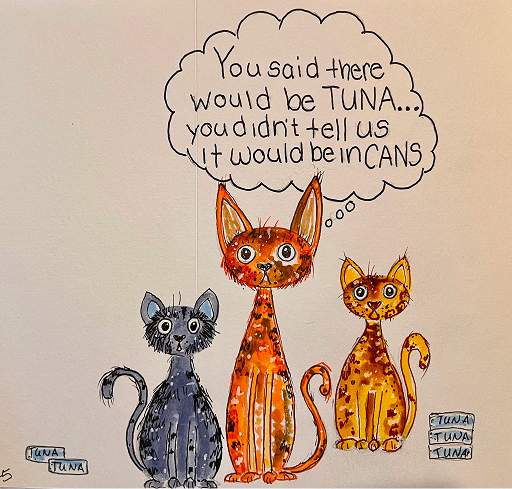 You said there
would be TUNA...
you didn't tell us
it would be in CANS
TUNA
TUNA
TUNA
TUNA
TUNA